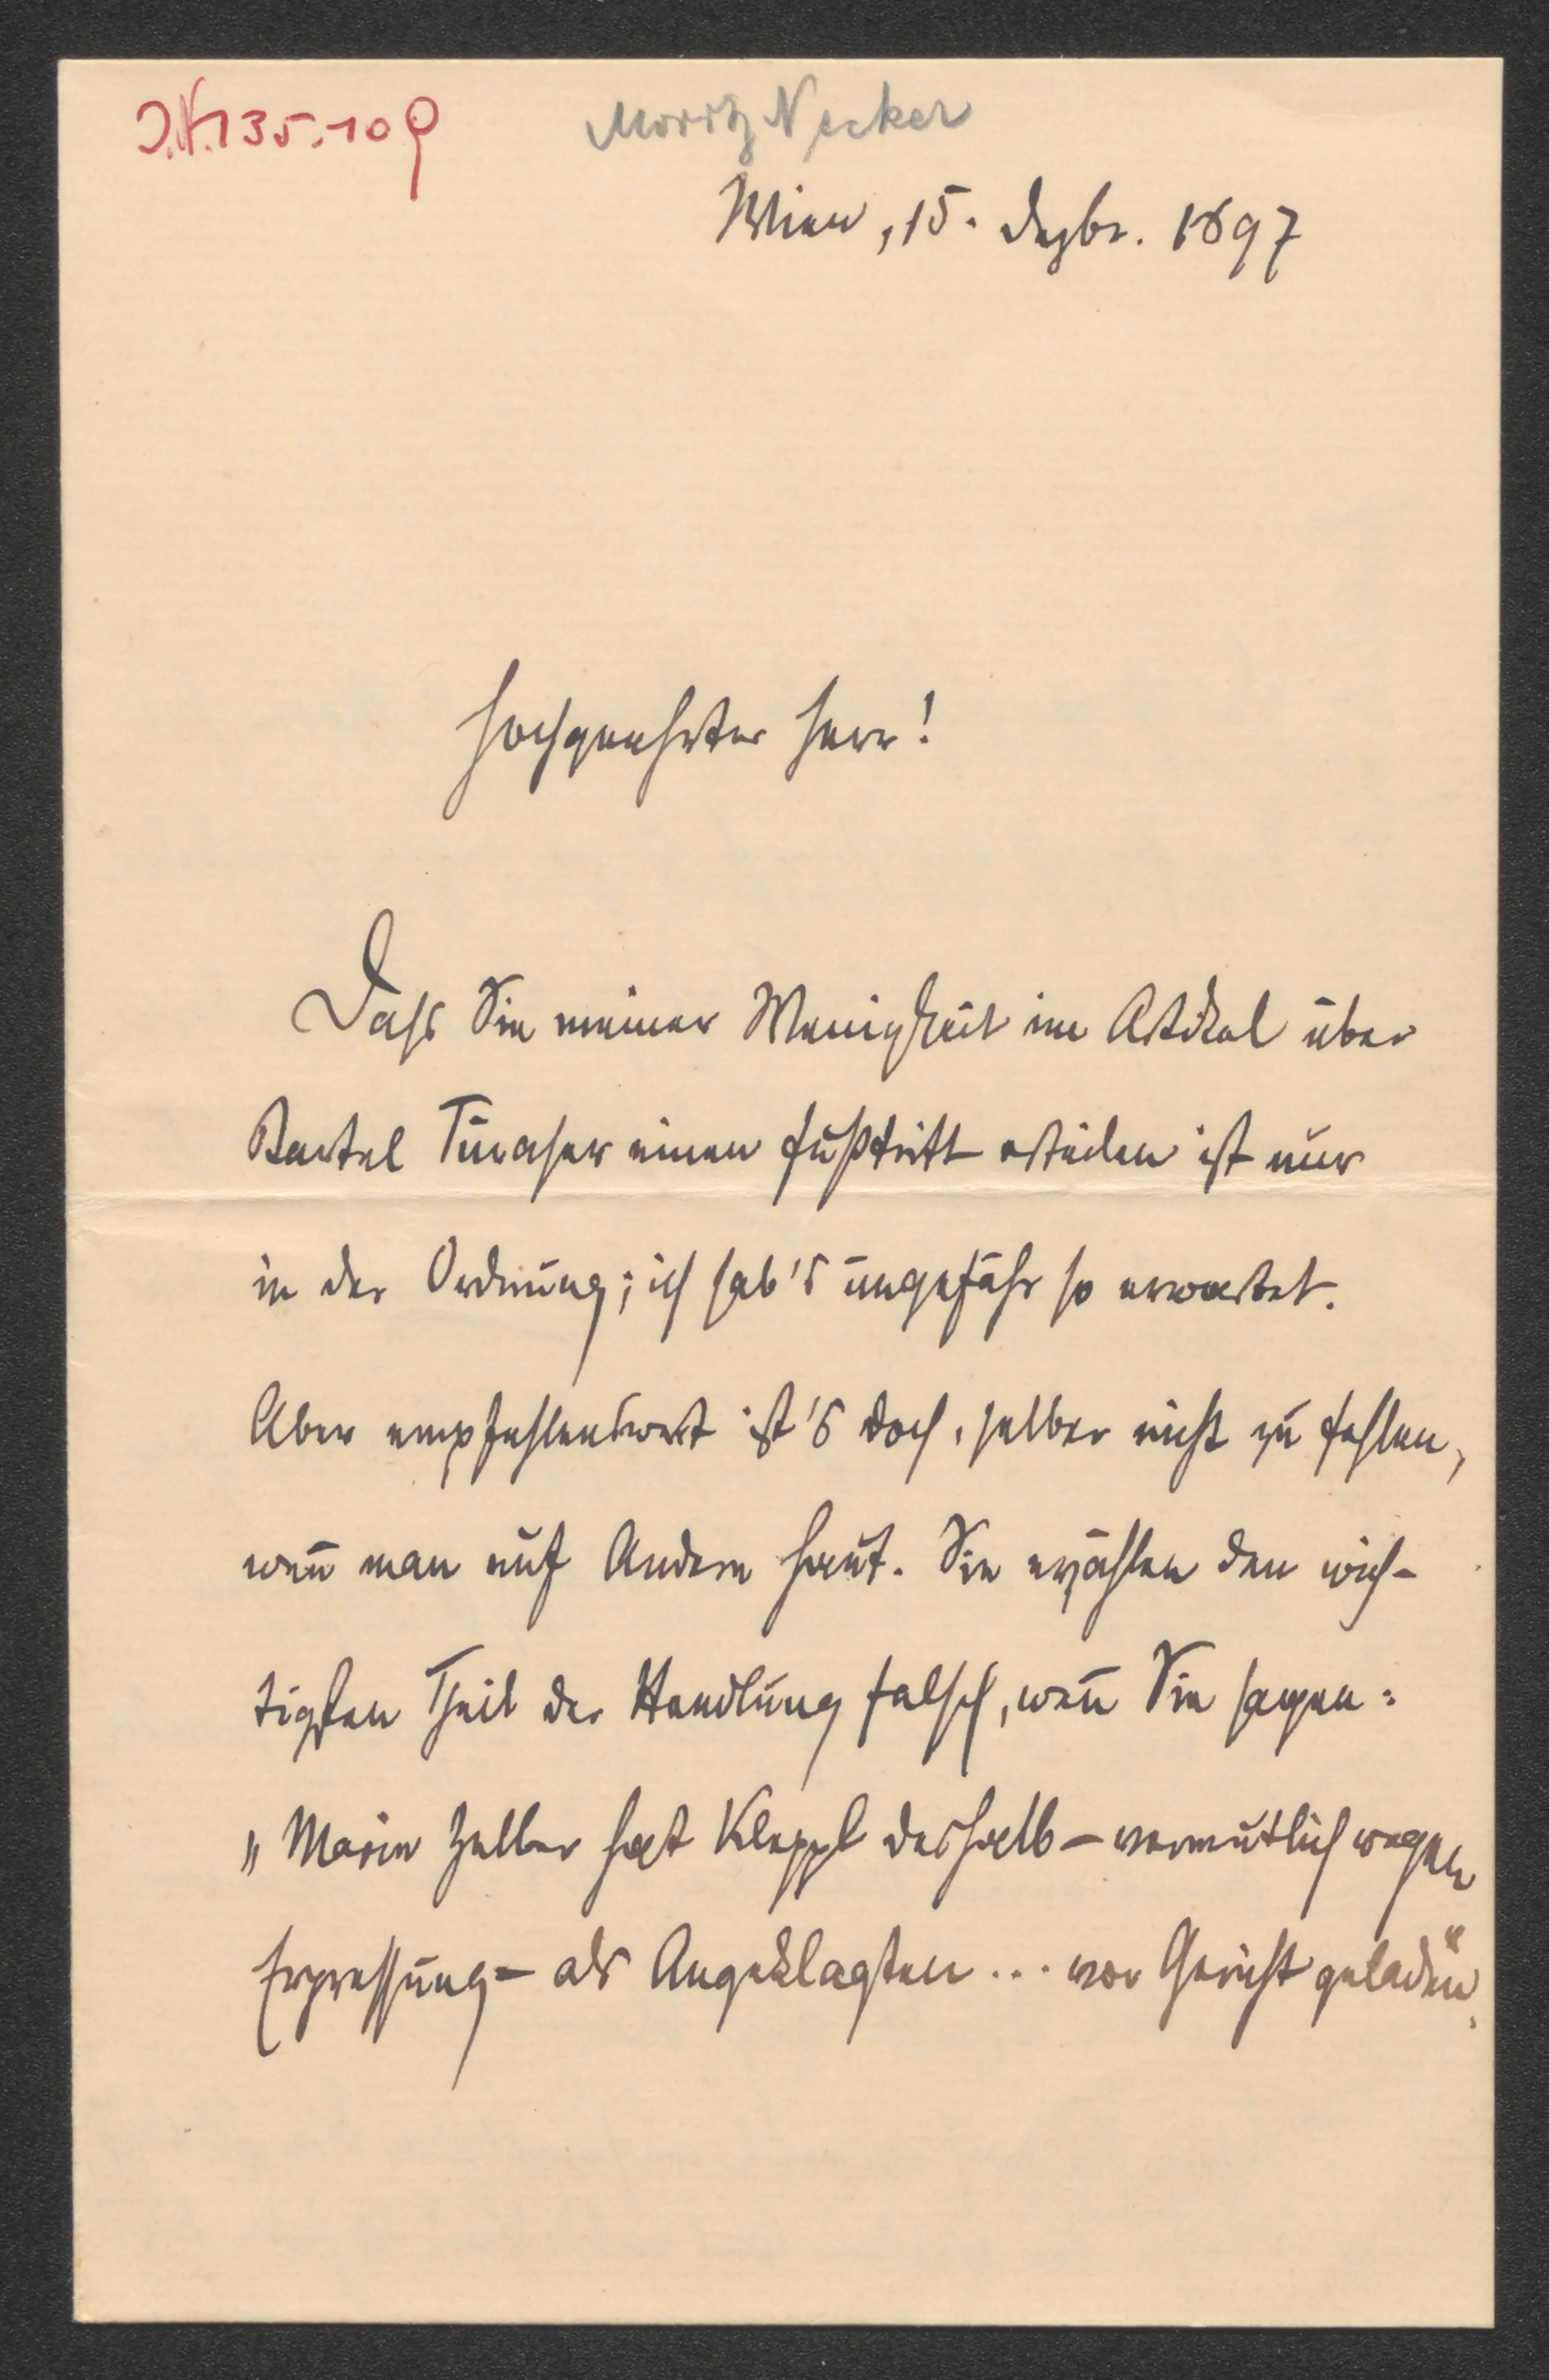 J.N. 135.109
Moritz Necker
Wien, 15. Dezbr. 1897
Hochgeehrter Herr!
Dass Sie meiner Wenigkeit im Artikel über
Bartel Turaser einen Fußtritt erteilen ist nur
in der Ordnung; ich hab's ungefähr so erwartet.
Aber empfehlenswert ist's doch, selber nicht zu fehlen,
wen̄ man auf Andere haut. Sie erzählen den wich-
tigsten Theil der Handlung falsch, wen̄ Sie sagen:
„Marie Zelber hat Kleppl deshalb – vermutlich wegen
Erpressung – als Angeklagten ... vor Gericht geladen“.